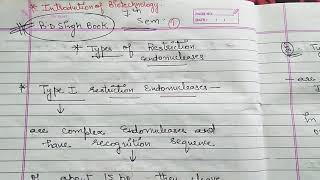 * Introduction of Biotechnology
7th
* B.D Singh Book
Sem - 1
* Types of Restriction
endonucleases
* Type I restriction Endonucleases -
are complex Endonucleases and
have recognition sequence
of about 15 bp they cleave
- are
In